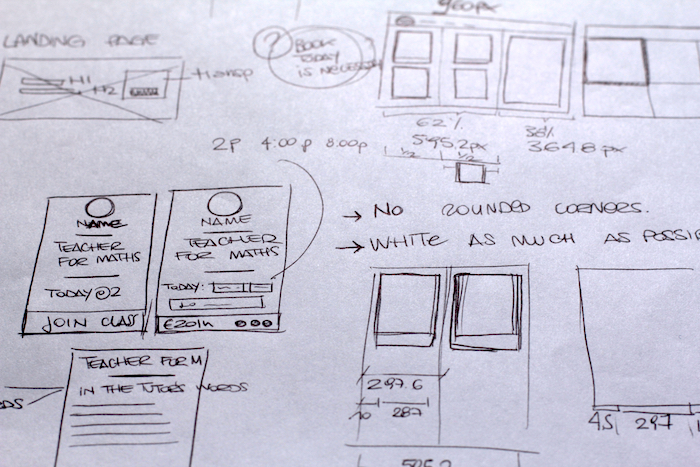 960px
LANDING PAGE
?
BOOK
TODAY
IS
H1
H2
transp
62%
595.2px
38%
364.8 px
1/2
1/2
2P 4:00p 8:00p
→ NO ROUNDED CORNERS.
→ WHITE AS MUCH AS POSSIB
NAME
TEACHER
FOR MATHS
TODAY@2
JOIN CLASS
NAME
TEACHER
FOR MATHS
TODAY:
€20/h
TEACHER FOR M
IN THE TUTOR'S WORDS
297.6
10
287
45
297